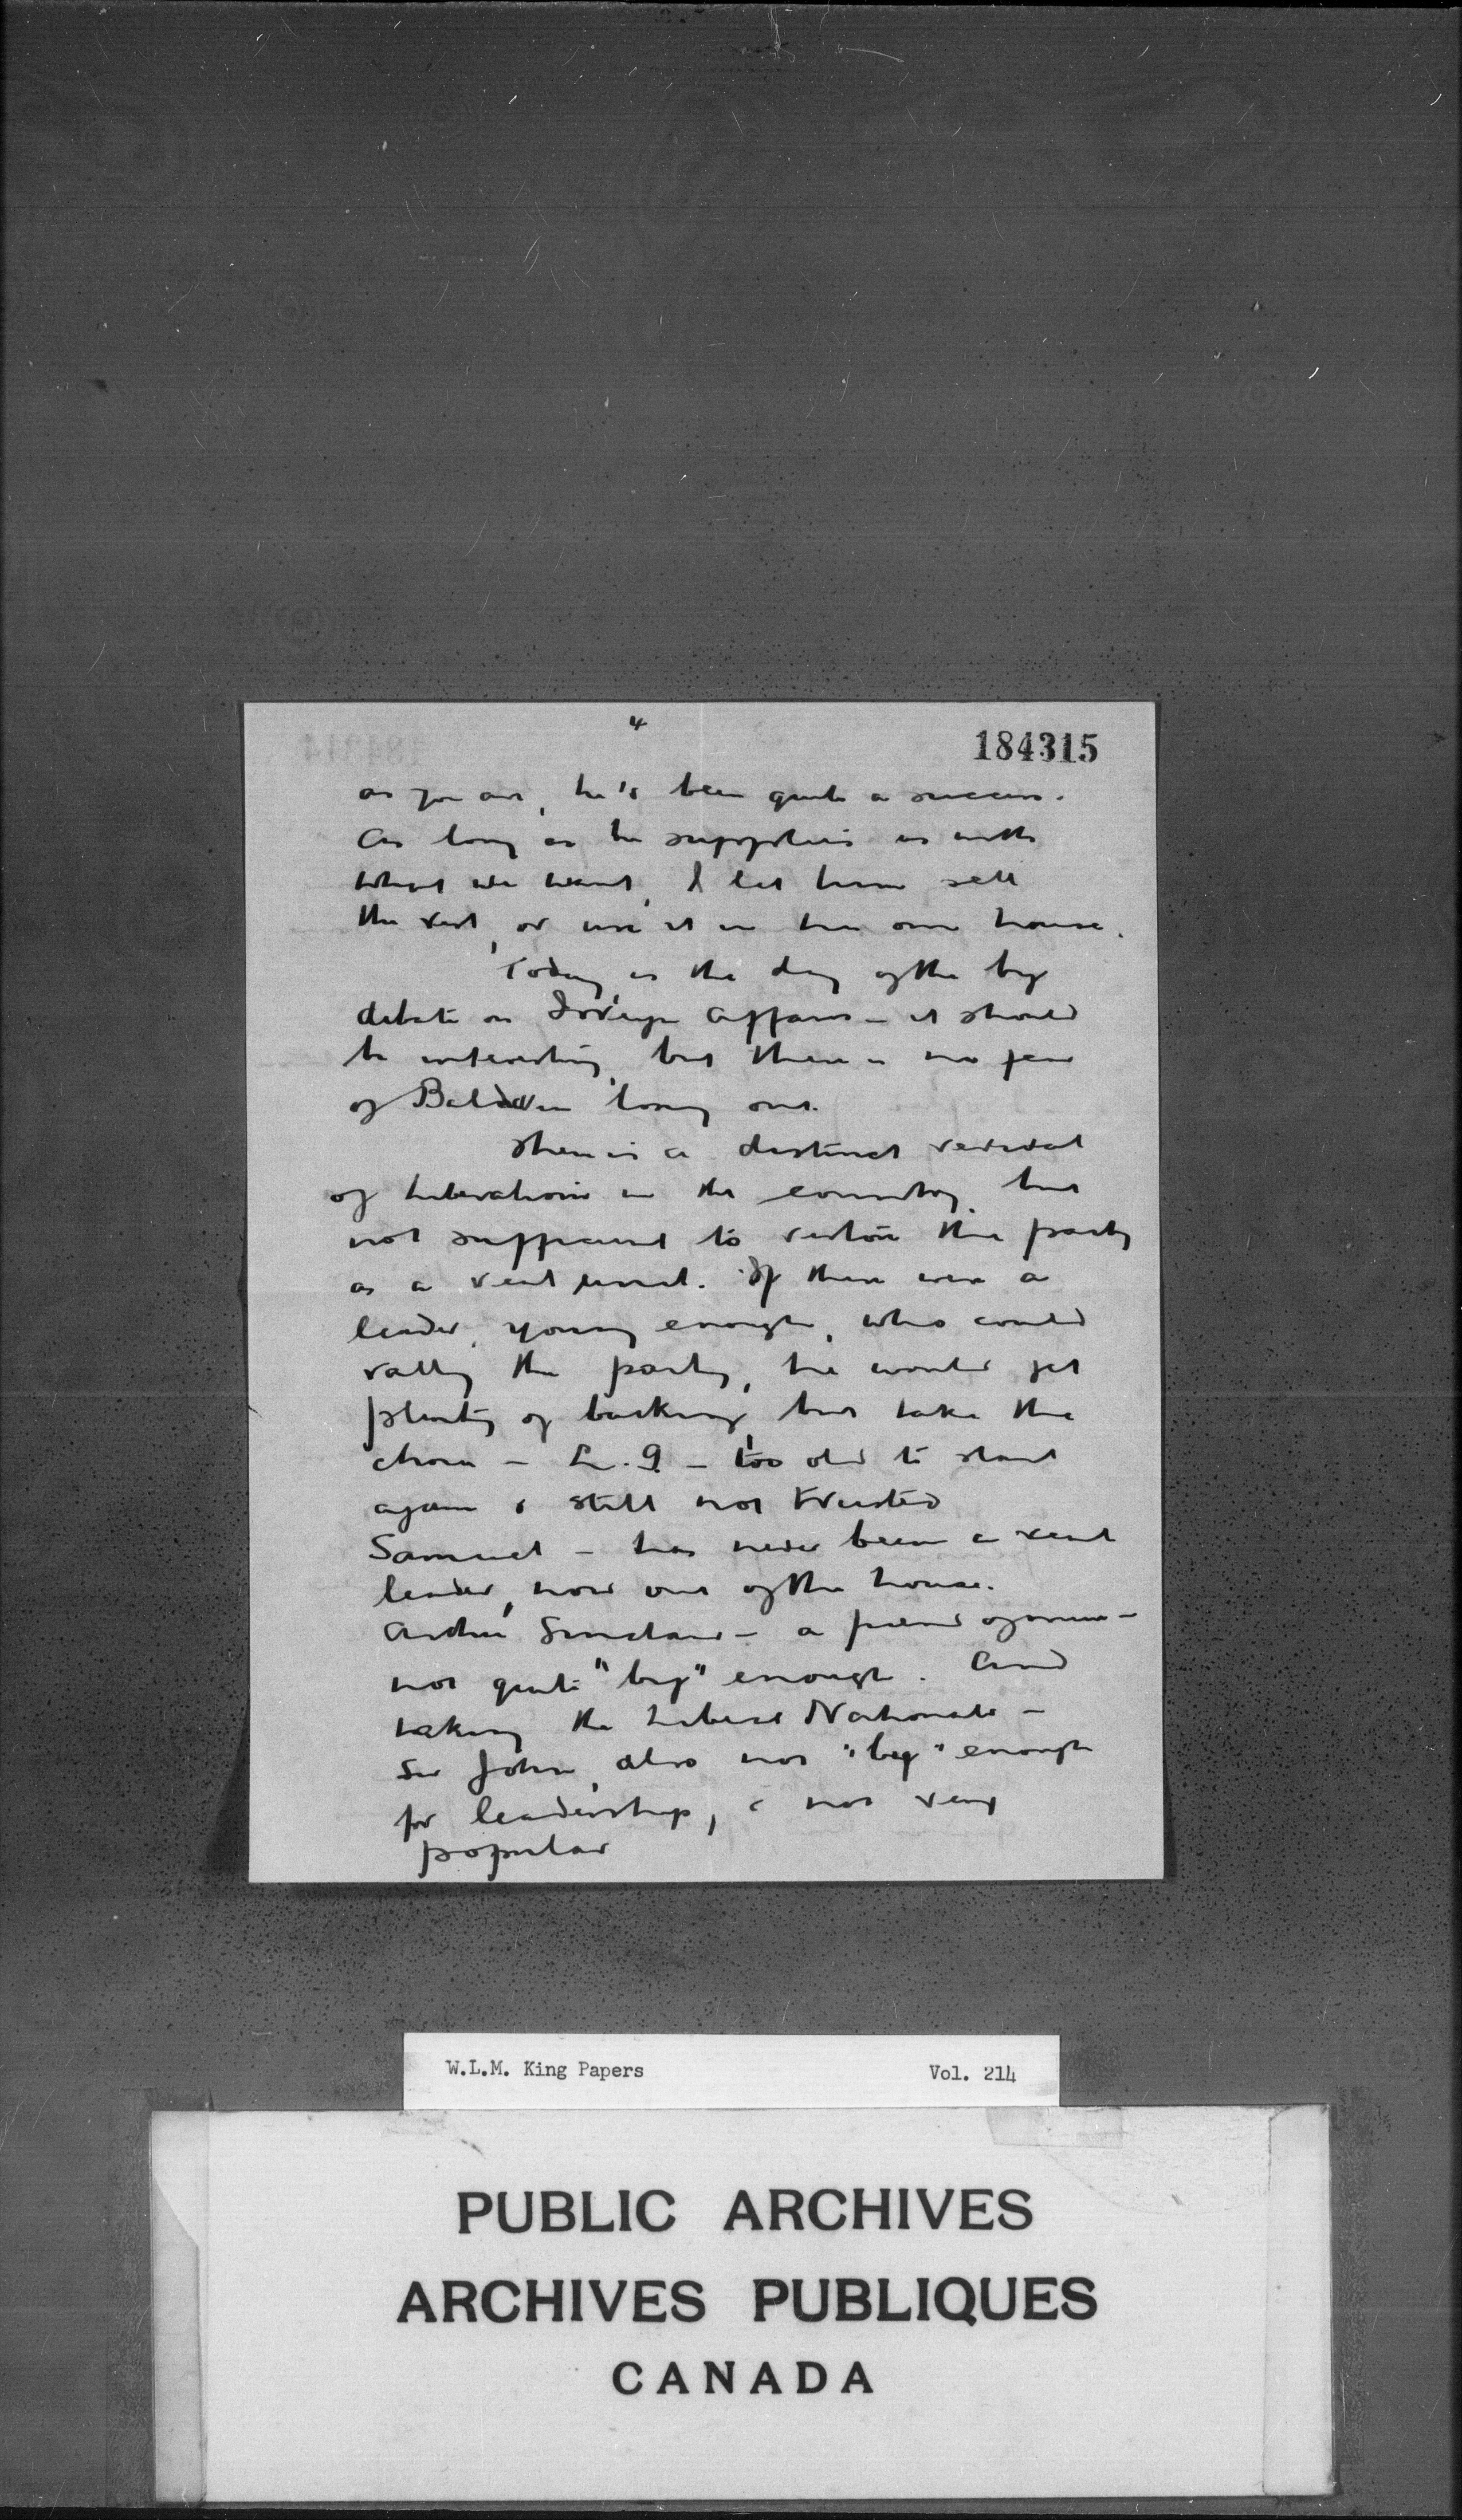 4
184315
as you are, he's been quite a success.
As long as he supplies us with
what we want, I let him sell
the rest, or use it in his own house.
Today is the day of the big
debate on Foreign Affairs - it should
be interesting, but there is no fear
of Baldwin losing out.
There is a distinct revival
of Liberalism in the country, but
not sufficient to restore the party
as a real unit. If there were a
leader, young enough, who could
rally the party, he would get
plenty of backing, but take the
choice - L.G. - too old to start
again & still not trusted
Samuel - has never been a real
leader, now out of the house.
Archie Sinclair - a friend of mine -
not quite "big" enough. And
taking the Liberal Nationals -
Sir John, also not "big" enough
for leadership, & not very
popular
W.L.M. King Papers Vol. 214
PUBLIC ARCHIVES
ARCHIVES PUBLIQUES
CANADA